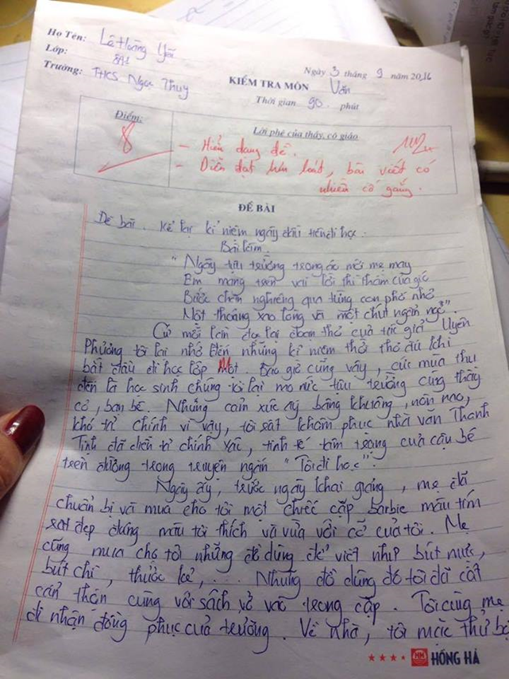 Họ Tên: Lê Hoàng Yến
Lớp: 8A1
Trường: THCS Ngọc Thụy
Ngày 3 tháng 9 năm 2016
KIỂM TRA MÔN Văn
Thời gian 90 phút
Điểm:
8
Lời phê của thầy, cô giáo
- Hiểu dạng đề.
- Diễn đạt lưu loát, bài viết có
nhiều cố gắng.
ĐỀ BÀI
Đề bài: Kể lại kỉ niệm ngày đầu tiên đi học.
Bài làm
"Ngày tựu trường trong áo mới mẹ may
Em mang trên vai lời thì thầm của gió
Bước chân nghiêng qua từng con phố nhỏ
Một thoáng xao lòng và một chút ngẩn ngơ".
Cứ mỗi lần đọc lại đoạn thơ của tác giả Uyên
Phương tôi lại nhớ đến những kỉ niệm thở thơ ấu khi
bắt đầu đi học lớp Một. Bao giờ cũng vậy, cứ mùa thu
đến là học sinh chúng tôi lại nô nức tựu trường cùng thầy
cô, bạn bè. Nhưng cảm xúc ấy bâng khuâng, nôn nao,
khó tả chính vì vậy, tôi rất khâm phục nhà văn Thanh
Tịnh đã diễn tả chính xác, tinh tế tâm trạng của cậu bé
trên đường trong truyện ngắn "Tôi đi học".
Ngày ấy, trước ngày khai giảng, mẹ đã
chuẩn bị và mua cho tôi một chiếc cặp barbie màu tím
rất đẹp đúng màu tôi thích và vừa với cỡ của tôi. Mẹ
cũng mua cho tôi những đồ dùng để viết như bút mực,
bút chì, thước kẻ, ... Những đồ dùng đó tôi đã cất
cẩn thận cùng với sách vở vào trong cặp. Tôi cùng mẹ
đi nhận đồng phục của trường. Về nhà, tôi mặc thử bộ
HỒNG HÀ